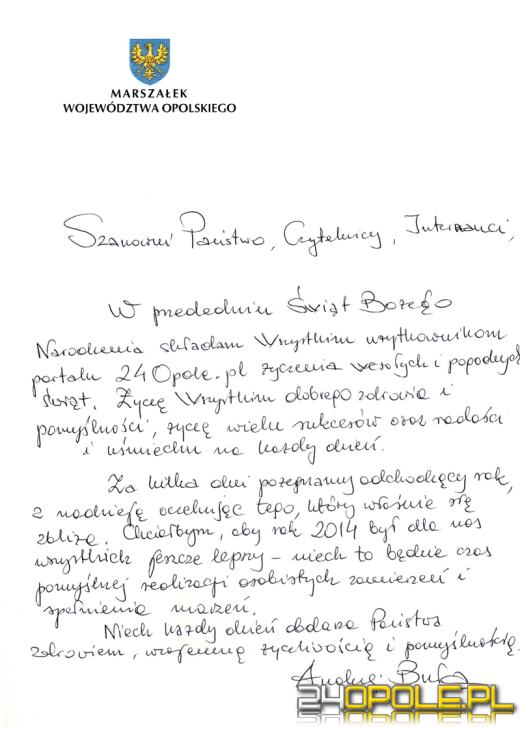 MARSZAŁEK
WOJEWÓDZTWA OPOLSKIEGO
Szanowni Państwo, Czytelnicy, Internauci,
W przededniu Świąt Bożego
Narodzenia składam Wszystkim użytkownikom
portalu 24Opole.pl życzenia wesołych i pogodnych
świąt. Życzę Wszystkim dobrego zdrowia i
pomyślności, życzę wielu sukcesów oraz radości
i uśmiechu na każdy dzień.
Za kilka dni pożegnamy odchodzący rok,
z nadzieją oczekując tego, który właśnie się
zbliża. Chciałbym, aby rok 2014 był dla nas
wszystkich jeszcze lepszy – niech to będzie czas
pomyślnej realizacji osobistych zamierzeń i
spełnienia marzeń.
Niech każdy dzień obdarza Państwa
zdrowiem, wzajemną życzliwością i pomyślnością.
Andrzej Buła
24OPOLE.PL